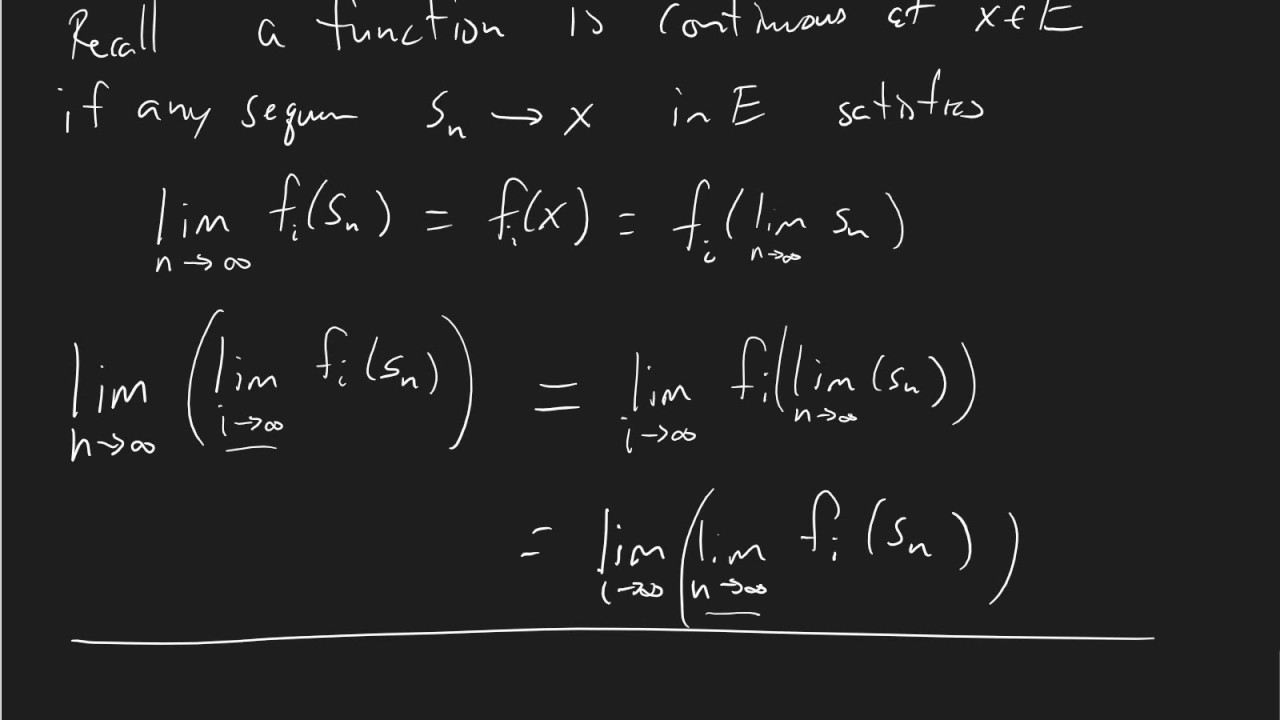 Recall a function is continuous at x ∈ E
if any sequen s_n → x in E satisfies
lim_{n→∞} f_i(s_n) = f_i(x) = f_i(lim_{n→∞} s_n)
lim_{n→∞} (lim_{i→∞} f_i(s_n)) = lim_{i→∞} f_i(lim_{n→∞} (s_n))
= lim_{i→∞} (lim_{n→∞} f_i(s_n))